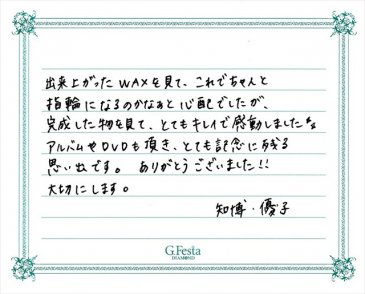 出来上がったWAXを見て、これでちゃんと
指輪になるのかなぁと心配でしたが、
完成した物を見て、とてもキレイで感動しました☆
アルバムやDVDも頂き、とても記念に残る
思い出です。ありがとうございました!!
大切にします。
知博・優子
G.Festa
DIAMOND